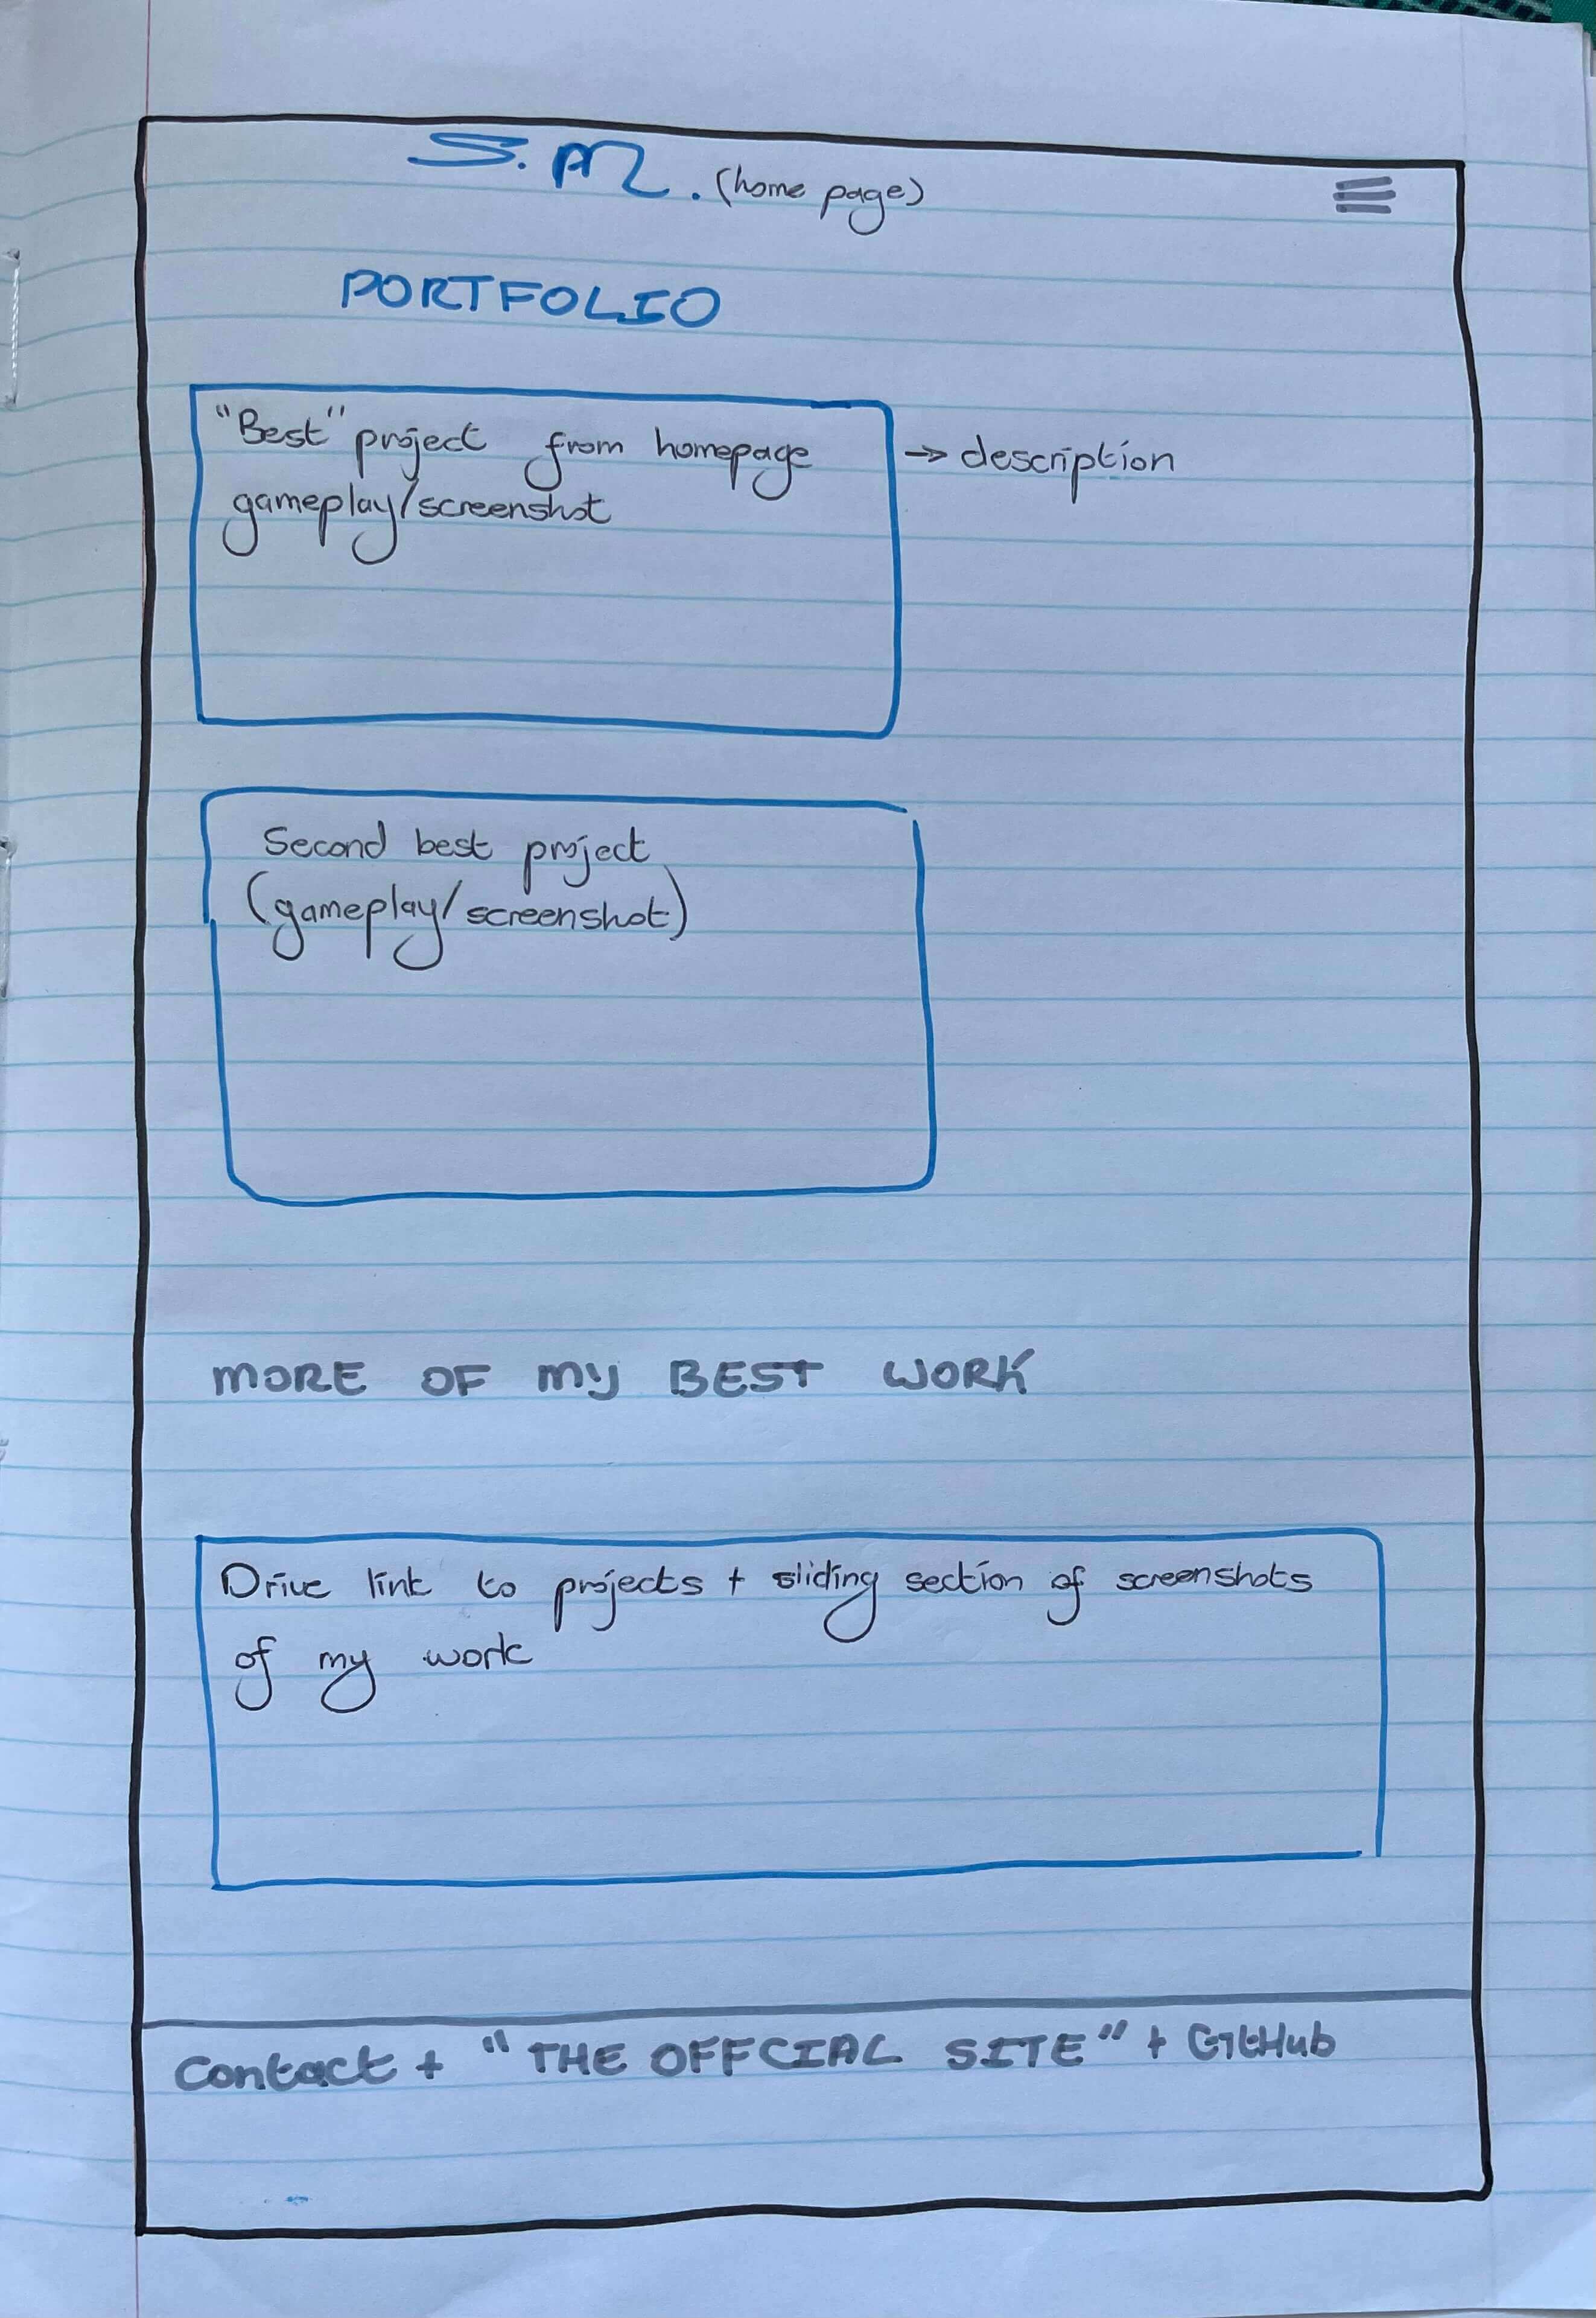 S.M. (home page)
PORTFOLIO
"Best" project from homepage → description
gameplay/screenshot
Second best project
(gameplay/screenshot)
MORE OF MY BEST WORK
Drive link to projects + sliding section of screenshots
of my work
Contact + "THE OFFCIAL SITE" + GitHub